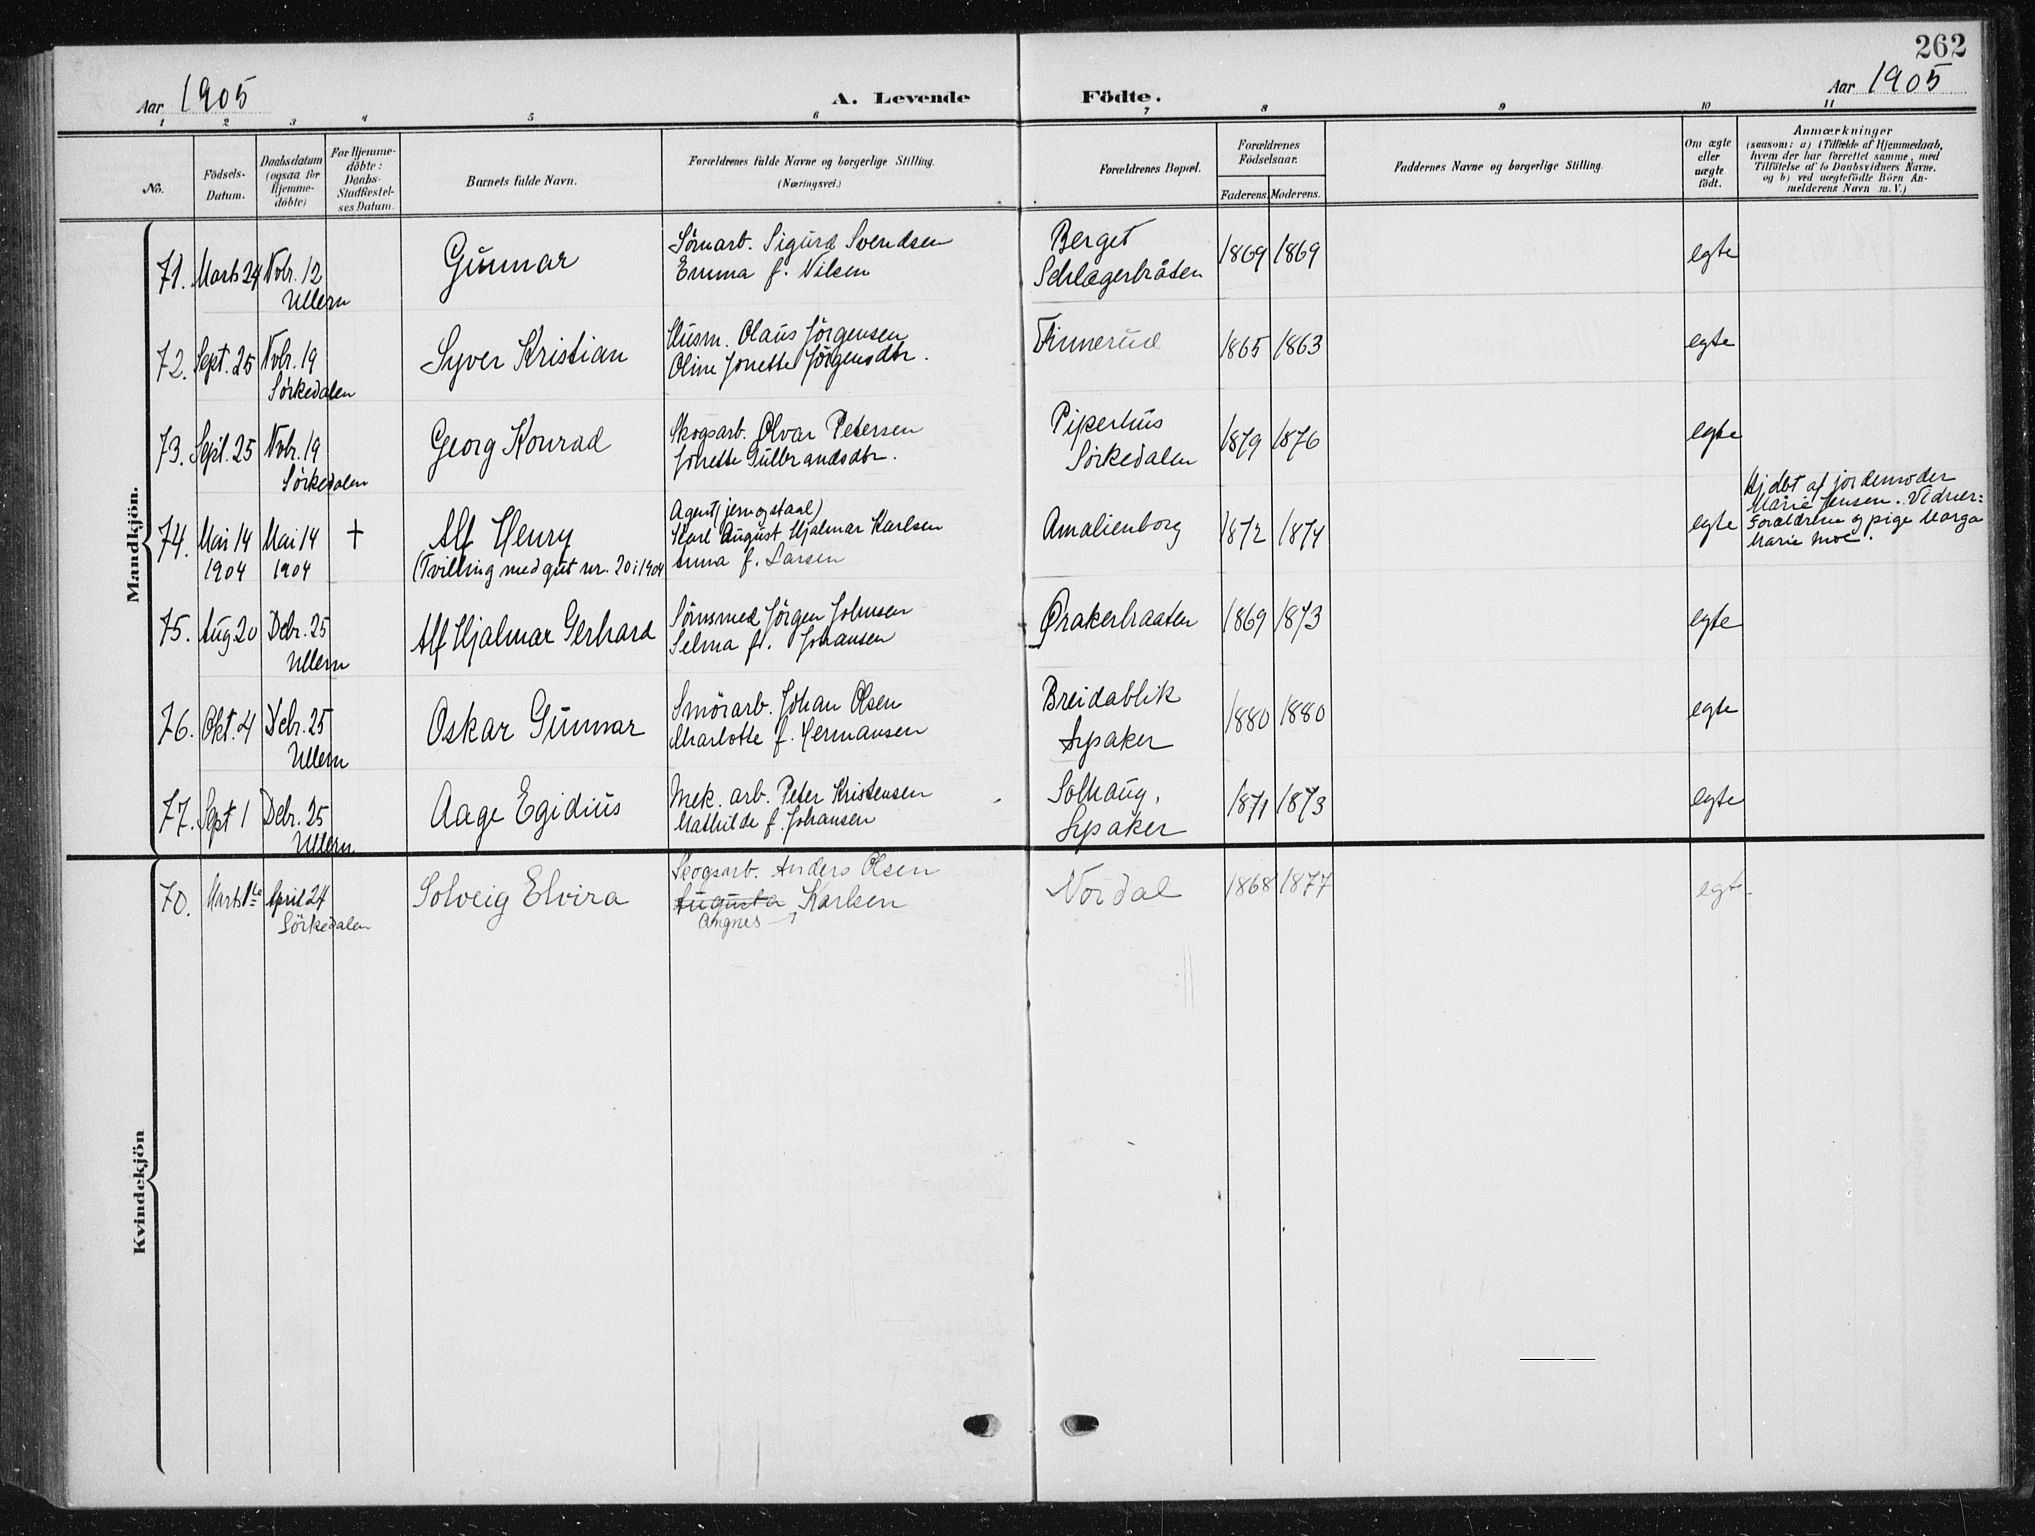 262
Aar 1905
A. Levende Födte.
Aar 1905
1 2 3 4 5 6 7 8 9 10 11
No.
Födsels-
Datum.
Daabsdatum
(ogsaa for
Hjemme-
döbte)
For Hjemme-
döbte:
Daabs-
Stadfæstel-
ses Datum.
Barnets fulde Navn.
Forældrenes fulde Navne og borgerlige Stilling.
(Næringsvei.)
Forældrenes Bopæl.
Forældrenes
Födselsaar.
Faderens. Moderens.
Faddernes Navne og borgerlige Stilling.
Om ægte
eller
uægte
födt.
Anmærkninger
(saasom: a) i Tilfælde af Hjemmedaab,
hvem der har forrettet samme, med
Tilföielse af to Daabsvidners Navne.
og b) ved uægtefödte Börn An-
melderens Navn m. V.)
Mandkjön.
71. Marts 24 Nvbr. 12
Ullern
Gunnar
Sömarb. Sigurd Svendsen
Emma f. Nilsen
Berget
1869 1869
egte
72. Sept. 25 Nvbr. 19
Sörkedalen
Syver Kristian
Husm. Olaus Jörgensen
Oline Jonette Jörgensdtr.
Finnerud
1865 1863
egte
73. Sept. 25 Nvbr. 19
Sörkedalen
Georg Konrad
Skogsarb. Olvar Petersen
Jonette Gulbrandsdtr.
Piperhus
Sörkedalen
1879 1876
egte
74. Mai 14
1904
Mai 14
1904
+
Alf Henry
(Tvilling med gut nr. 20 i 1904
Agent (jern og staal)
Karl August Hjalmar Karlsen
Anna f. Larsen
Amalienborg
1872 1874
egte
Hj.dbt af jordemoder
Marie Jensen. Vidner:
Forældrene og pige Marga
Marie Moe.
75. Aug 20 Debr. 25
Ullern
Alf Hjalmar Gerhard
Sömsmed Jörgen Johnsen
Selma f. Johansen
Ørakerbraaten
1869 1873
egte
76. Okt. 4 Debr. 25
Ullern
Oskar Gunnar
Smörarb. Johan Olsen
Charlotte f. Hermansen
Breidablik
Lysaker
1880 1880
egte
77. Sept 1 Debr. 25
Ullern
Aage Egidius
Mek. arb. Peter Kristensen
Mathilde f. Johansen
Solhaug,
Lysaker
1871 1873
egte
Kvindekjön
70. Marts 1ste April 24
Sörkedalen
Solveig Elvira
Skogsarb. Anders Olsen
Augusta Karlsen
Angnes
Nordal
1868 1877
egte